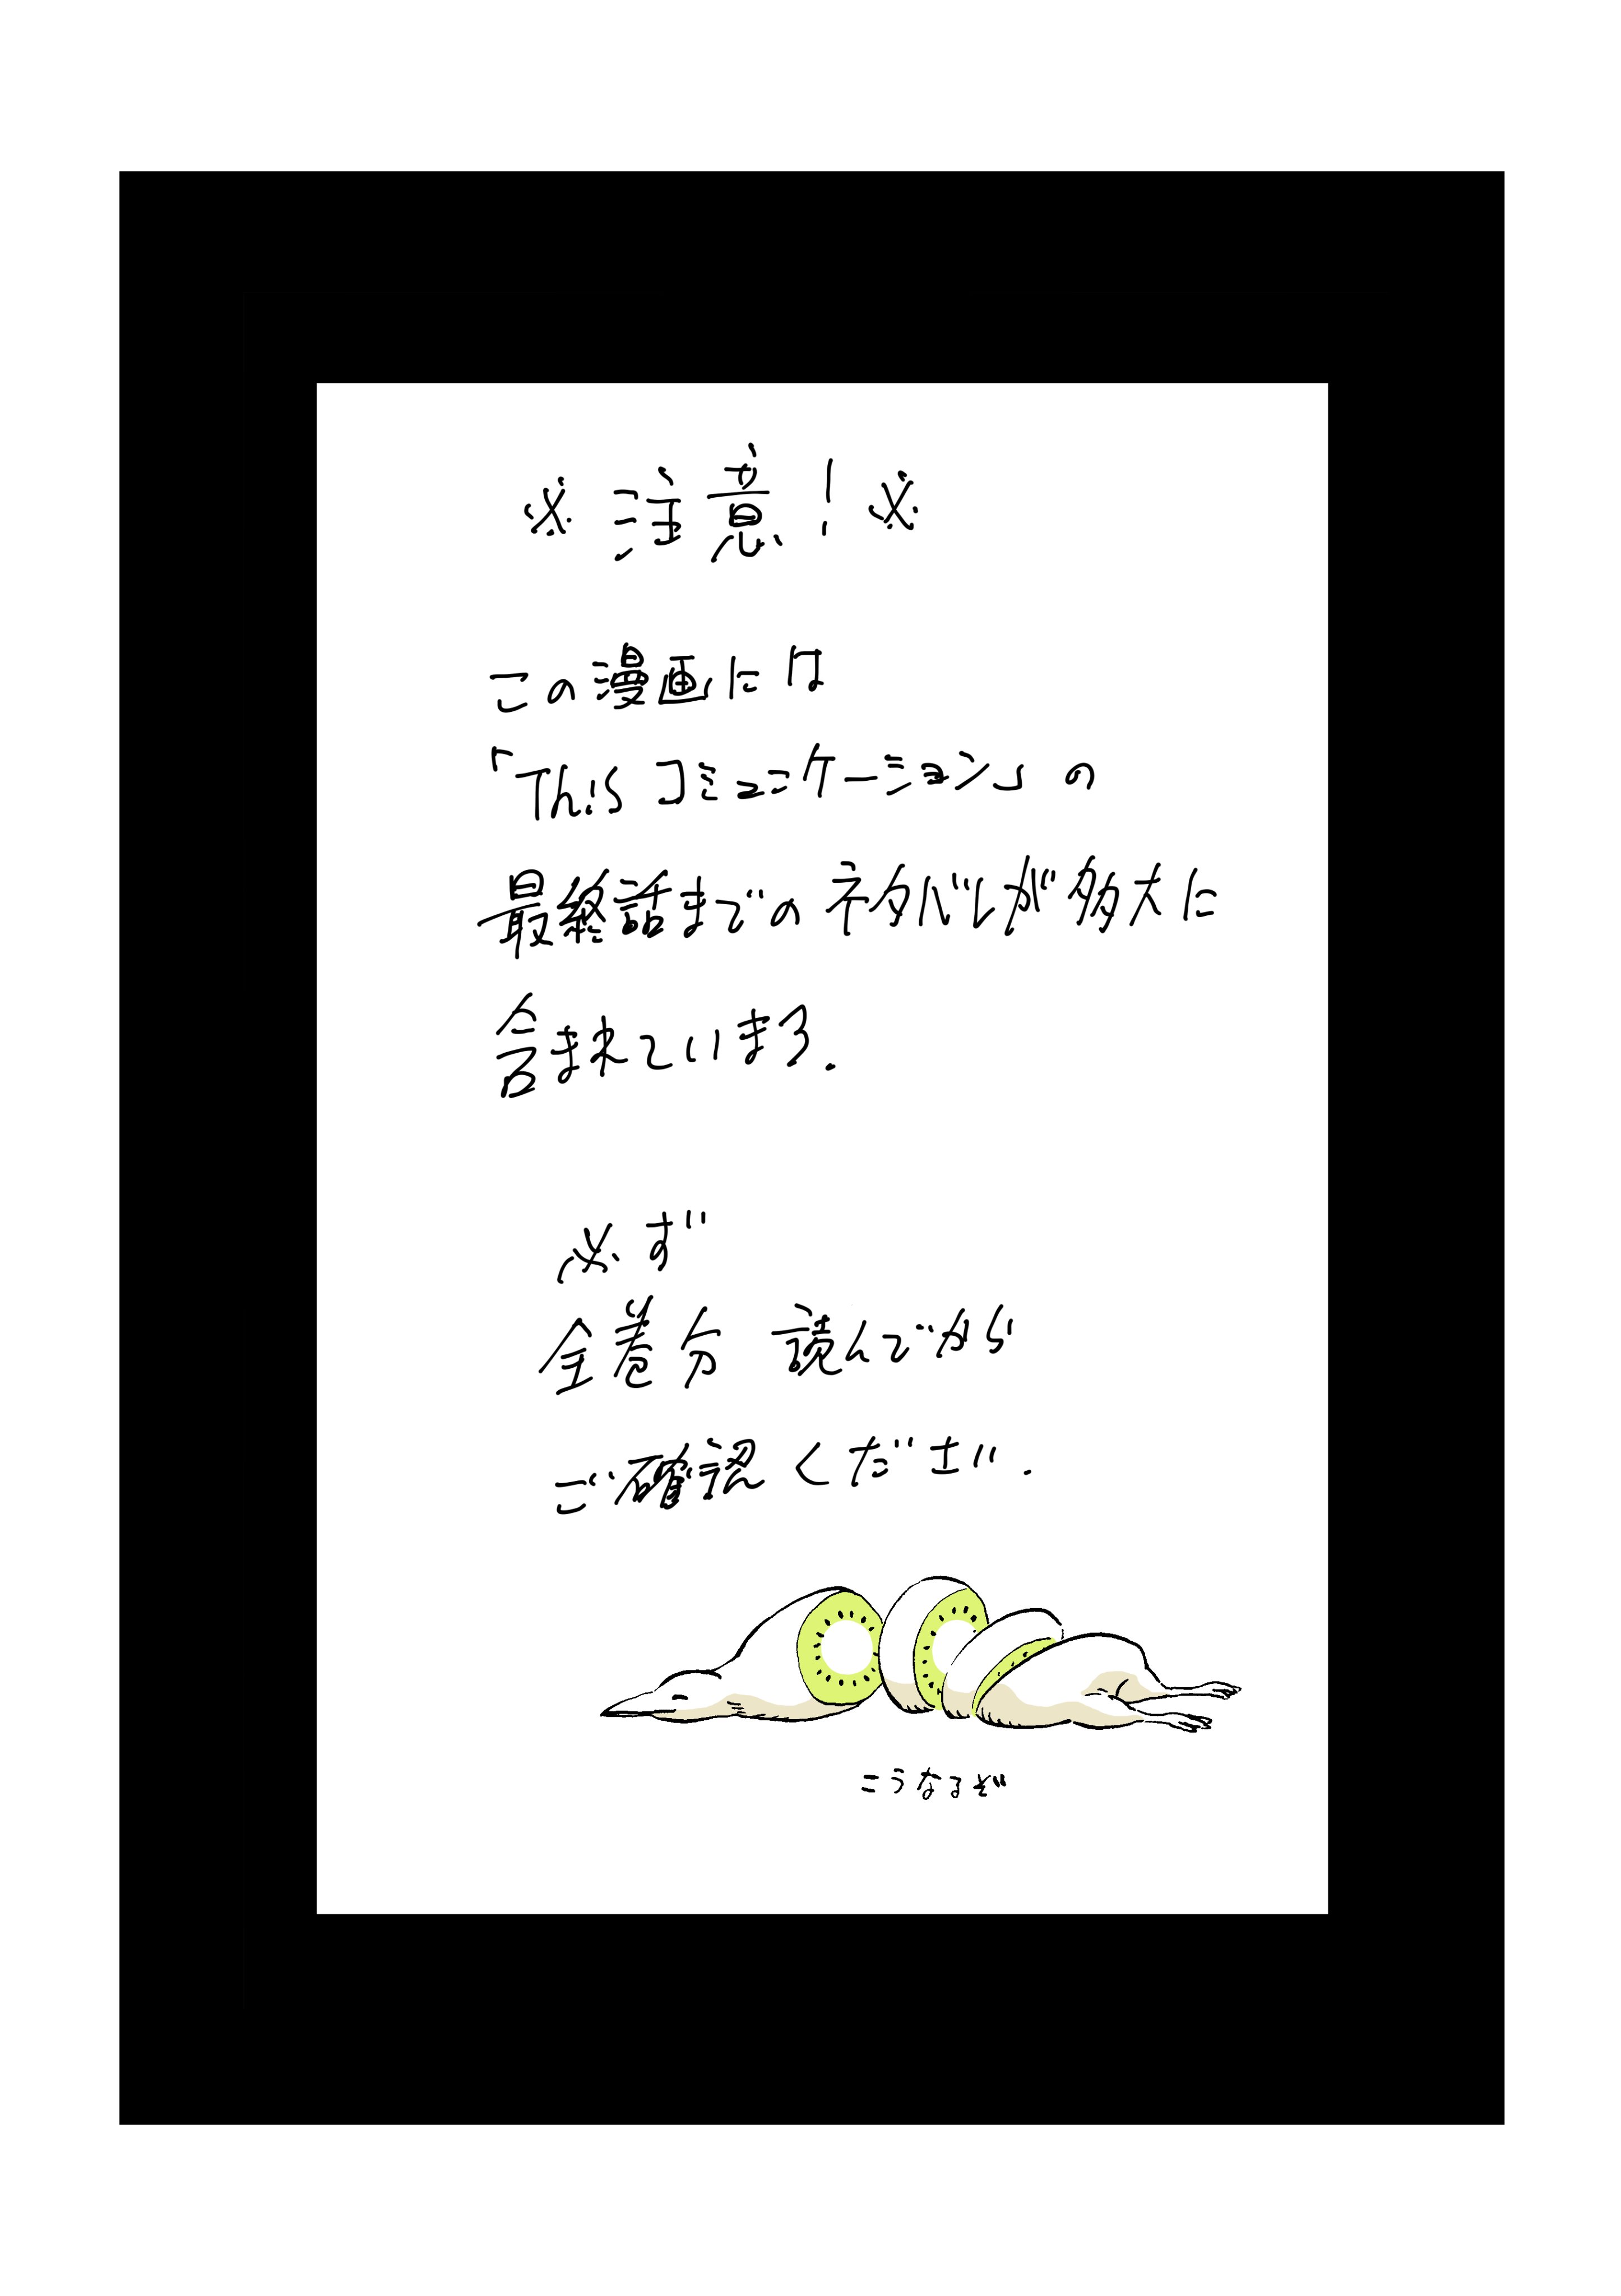 ※注意!※
この漫画には
「Thisコミュニケーション」の
最終話までのネタバレが多大に
含まれています.
必ず
全巻分 読んでから
ご確認ください.
こうなるぞ